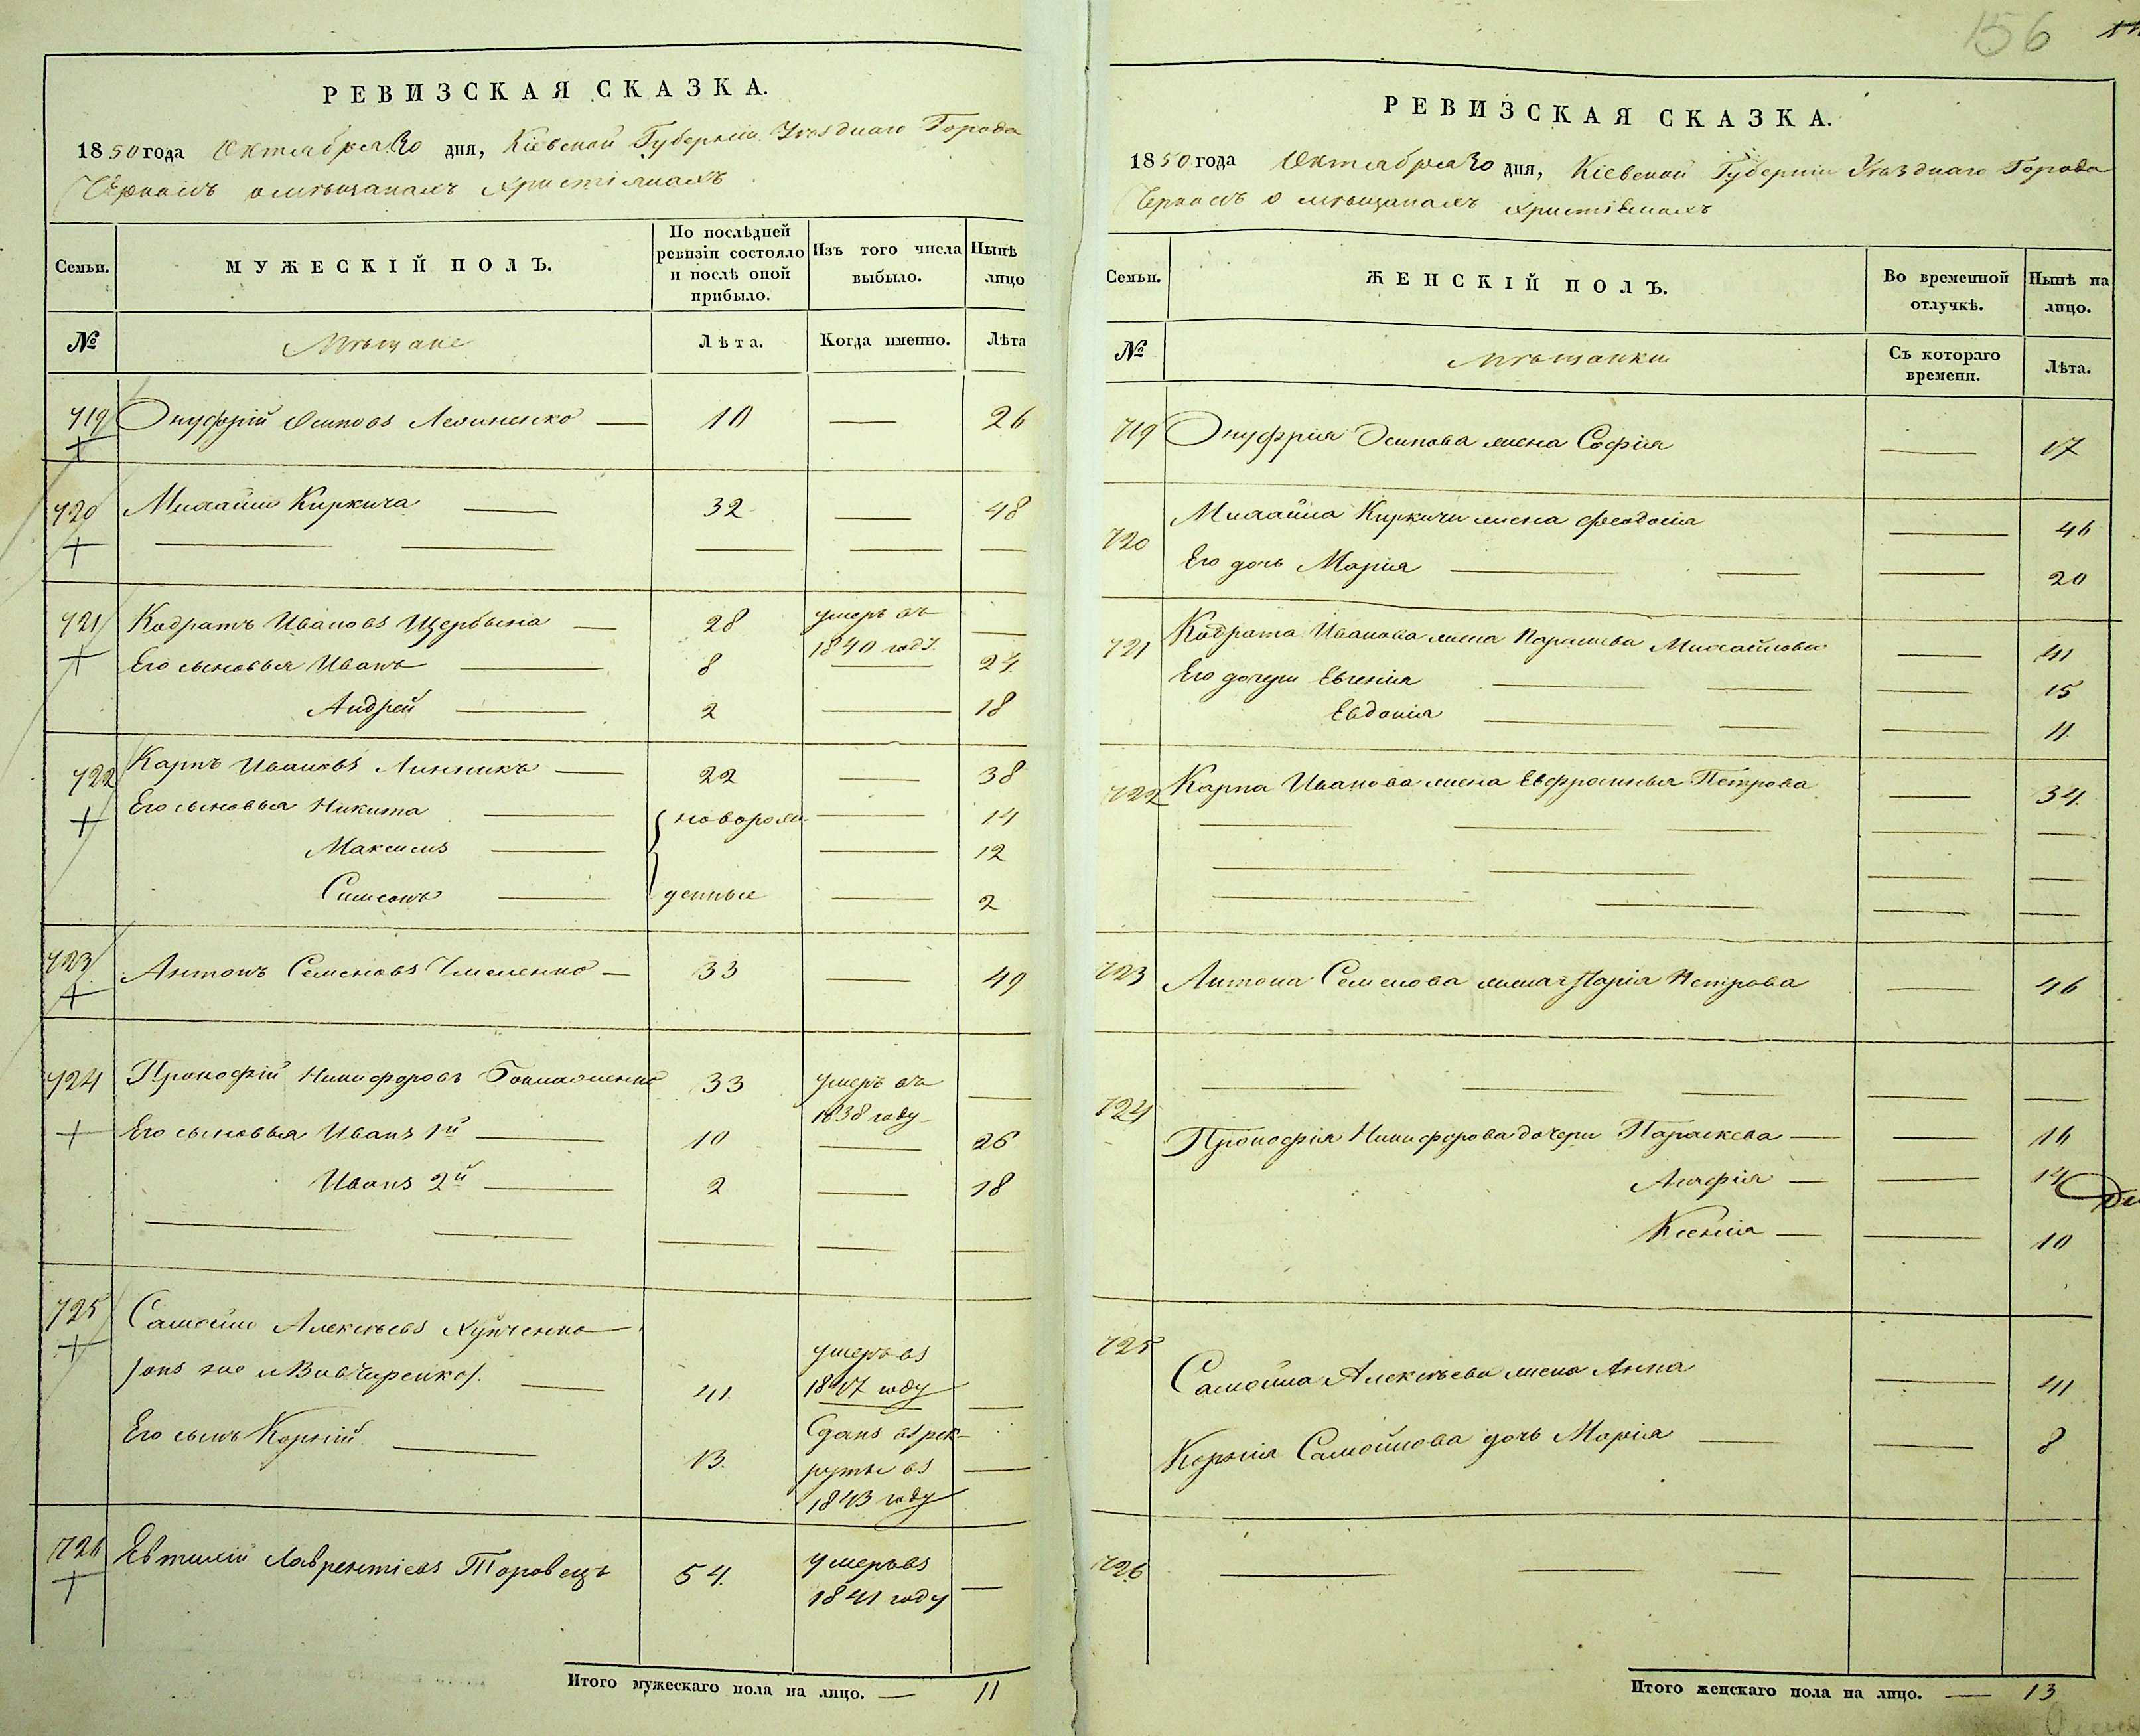 156
РЕВИЗСКАЯ СКАЗКА.
1850 года Октября 30 дня, Кіевской Губерніи Уѣзднаго Города
Черкасъ о мѣщанахъ христіянахъ
Семьи.
МУЖЕСКІЙ ПОЛЪ.
По послѣдней ревизіи состояло и послѣ оной прибыло.
Изъ того числа выбыло.
Нынѣ лицо
№
Мѣщане
Лѣта.
Когда именно.
Лѣта
719 Онуфрій Осиповъ — 10 — 26
720 Михайло Киркича — 32 — 48
721 Кодратъ Ивановъ Щербина — 28 умеръ въ 1840 году. —
Его сыновья Иванъ — 8 — 24
Андрей — 2 — 18
722 Карпъ Ивановъ Линникъ — 22 — 38
Его сыновья Никита — новорож- — 14
Максимъ — — 12
Симеонъ — денные — 2
723 Антонъ Семеновъ — 33 — 49
724 Прокофій Никифоровъ 33 умеръ въ 1838 году —
Его сыновья Иванъ 1й — 10 — 26
Иванъ 2й — 2 — 18
725 Самойло Алексѣевъ
онъ же и Вивчаренко — 41. умеръ въ 1847 году —
Его сынъ Корній — 13. Сданъ въ рекруты въ 1843 году —
726 Евтихій Лаврентіевъ Торовецъ 54. умеръ въ 1841 году —
Итого мужескаго пола на лицо. — 11
РЕВИЗСКАЯ СКАЗКА.
1850 года Октября 30 дня, Кіевской Губерніи Уѣзднаго Города
Черкасъ о мѣщанахъ христіянахъ
Семьи.
ЖЕНСКІЙ ПОЛЪ.
Во временной отлучкѣ.
Нынѣ на лицо.
№
Мѣщанки
Съ котораго времени.
Лѣта.
719 Онуфрія Осипова жена Софія — 17
720 Михайла Киркичи жена Феодосія — 46
Его дочь Марія — — 20
721 Кодрата Иванова жена Параскева Михайлова — 41
Его дочери Евгенія — — 15
Евдокія — — 11
722 Карпа Иванова жена Евфросинья Петрова — 34.
723 Антона Семенова жена Марія Петрова — 46
724
Прокофія Никифорова дочери Параскева — — 16
Агафія — — 14
Ксенія — — 10
725 Самойла Алексѣева жена Анна — 41
Корнія Самойлова дочь Марія — — 8
726 —
Итого женскаго пола на лицо. — 13